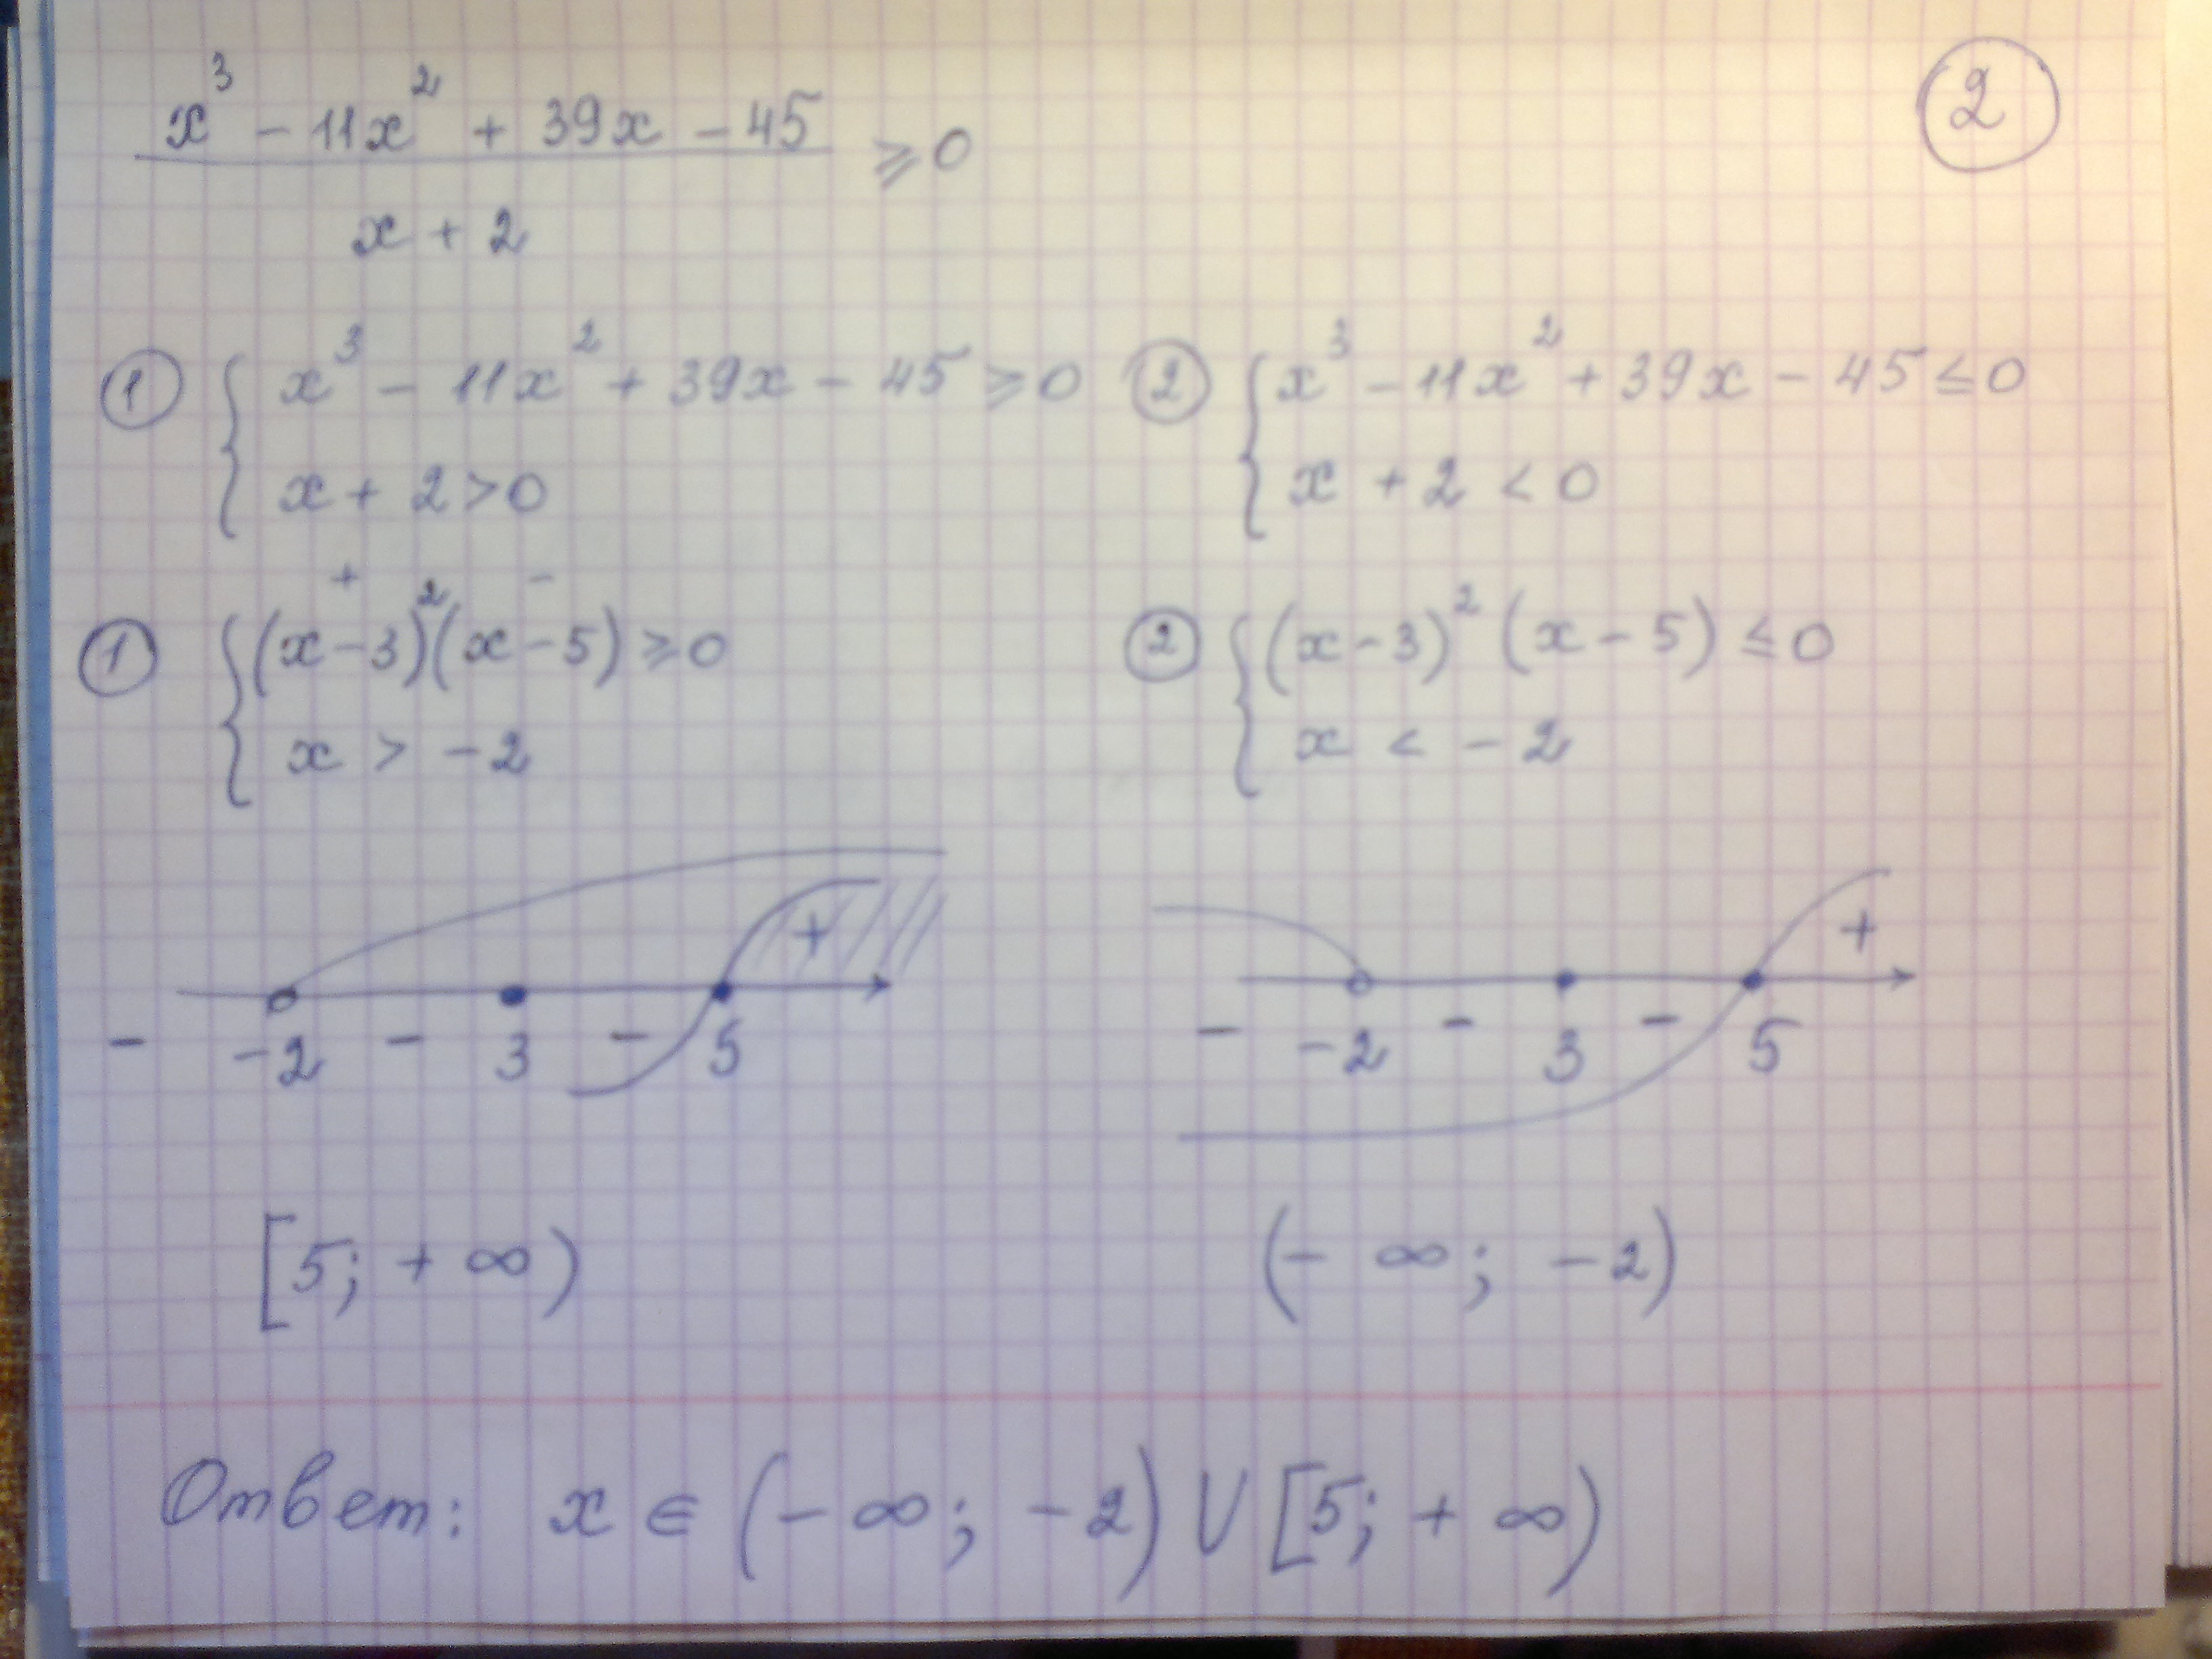 x³ - 11x² + 39x - 45 ⩾ 0
x + 2
2
1 { x³ - 11x² + 39x - 45 ⩾ 0
x + 2 > 0
2 { x³ - 11x² + 39x - 45 ≤ 0
x + 2 < 0
+ -
1 { (x-3)²(x-5) ⩾ 0
x > -2
2 { (x-3)² (x-5) ≤ 0
x < -2
+
- -2 - 3 - 5
+
- -2 - 3 - 5
[5; +∞)
(-∞; -2)
Ответ: x ∈ (-∞; -2) ∪ [5; +∞)